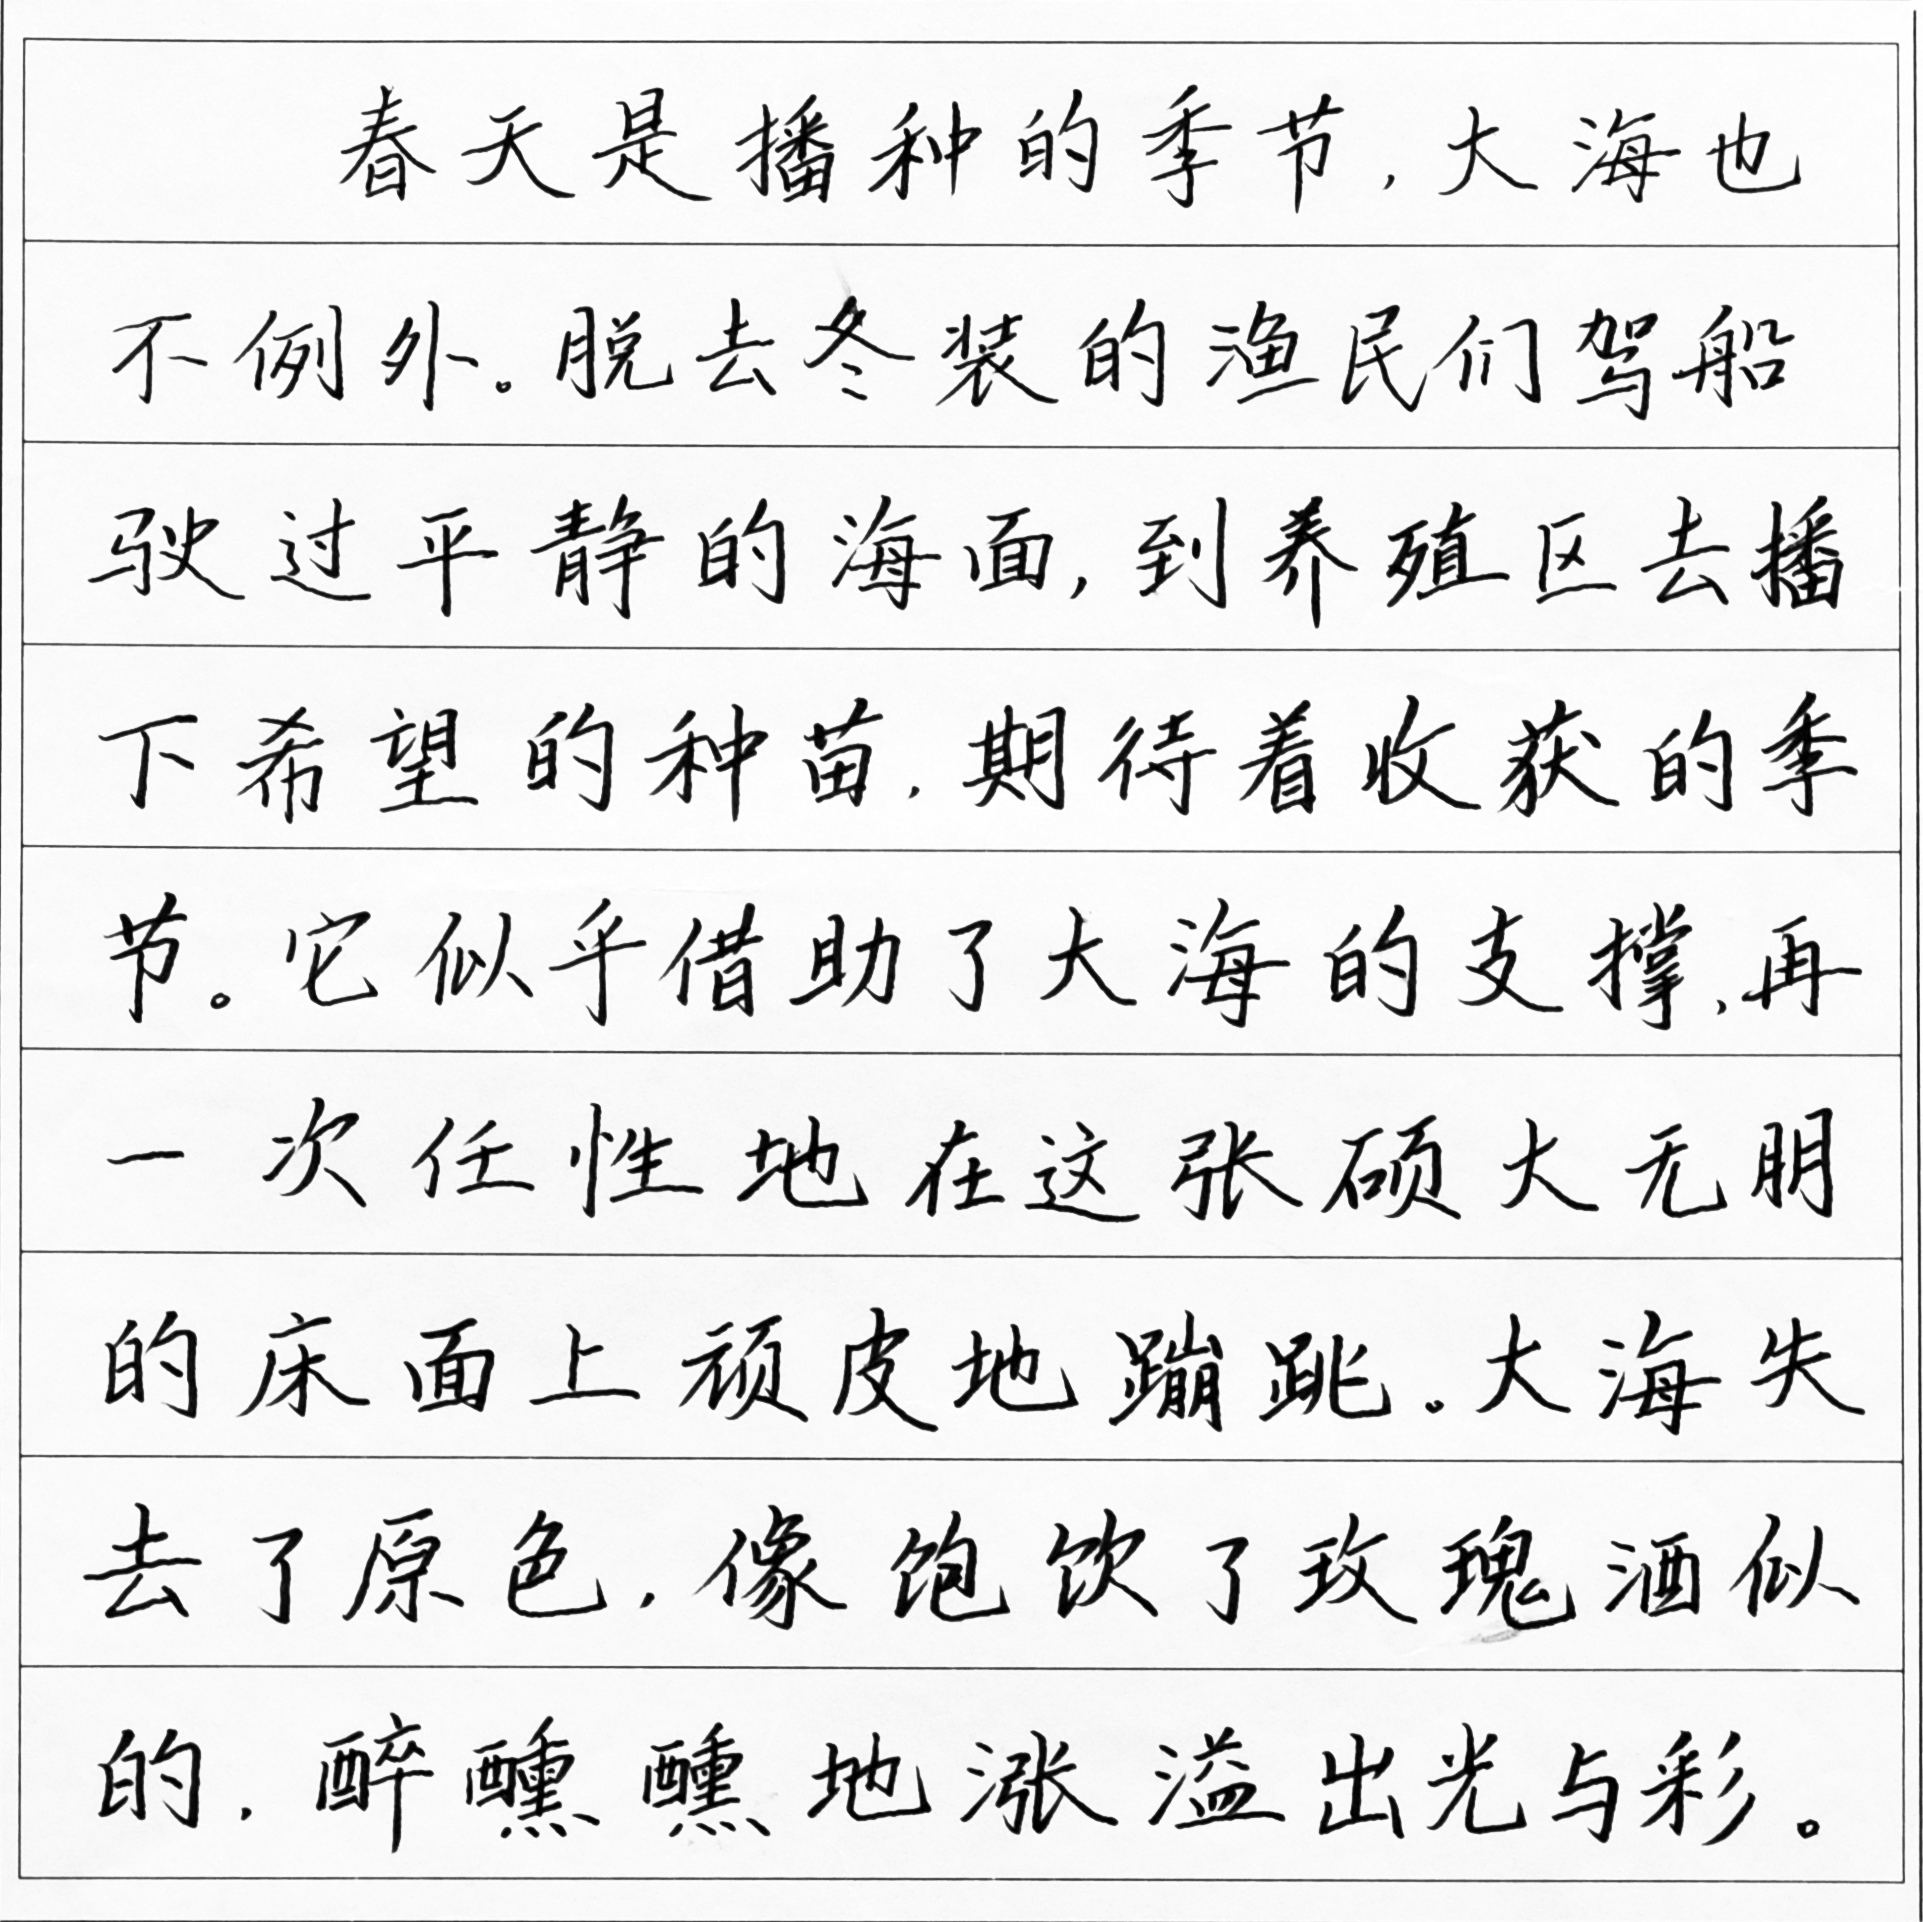 春天是播种的季节,大海也
不例外。脱去冬装的渔民们驾船
驶过平静的海面,到养殖区去播
下希望的种苗,期待着收获的季
节。它似乎借助了大海的支撑,再
一次任性地在这张硕大无朋
的床面上顽皮地蹦跳。大海失
去了原色,像饱饮了玫瑰酒似
的,醉醺醺地涨溢出光与彩。